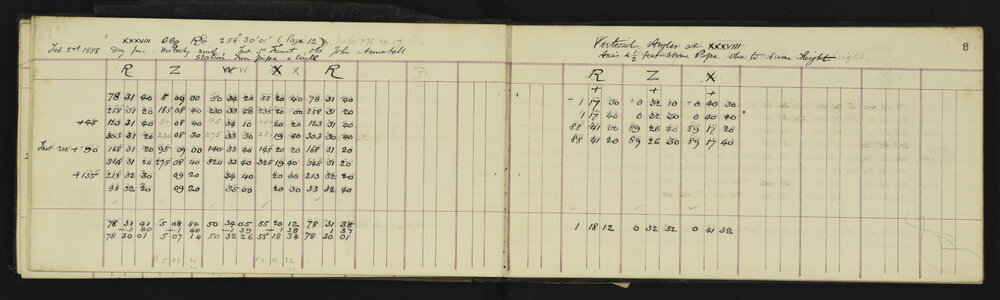 XXXVIII Obs R 258° 30' 01" (Page 12)
Feb 2nd 1888 Day fine. Windy Inst 5" Obs John
Station Iron pipe
R Z W X R
78 31 40 5 09 00 50 34 20 55 20 40 78 31 40
258 31 20 185 08 40 230 33 40 235 20 00 258 31 20
+45 123 31 40 08 40 34 10 20 20 123 31 40
303 31 20 230 08 30 275 33 30 280 19 40 303 30 40
+90 168 31 20 95 09 00 140 33 40 145 20 20 168 31 20
348 31 20 275 08 40 320 33 40 325 19 40 348 31 20
+135 213 32 30 09 20 34 40 20 30 213 32 20
33 32 20 09 20 35 00 20 30 33 32 40
78 31 41 5 08 54 50 34 05 55 20 12 78 31 38
1 40 1 40 1 39 1 38 1 37
78 30 01 5 07 14 50 32 26 55 18 34 78 30 01
8
Vertical Angles at XXXVIII
Axis 4½ feet above Pipe Obs to same height
R Z X
+ + +
+ 1 17 30 + 0 32 10 + 0 40 30
1 17 40 0 32 30 0 40 40
88 41 00 89 26 40 89 17 20
88 41 20 89 26 30 89 17 40
1 18 12 0 32 52 0 41 32